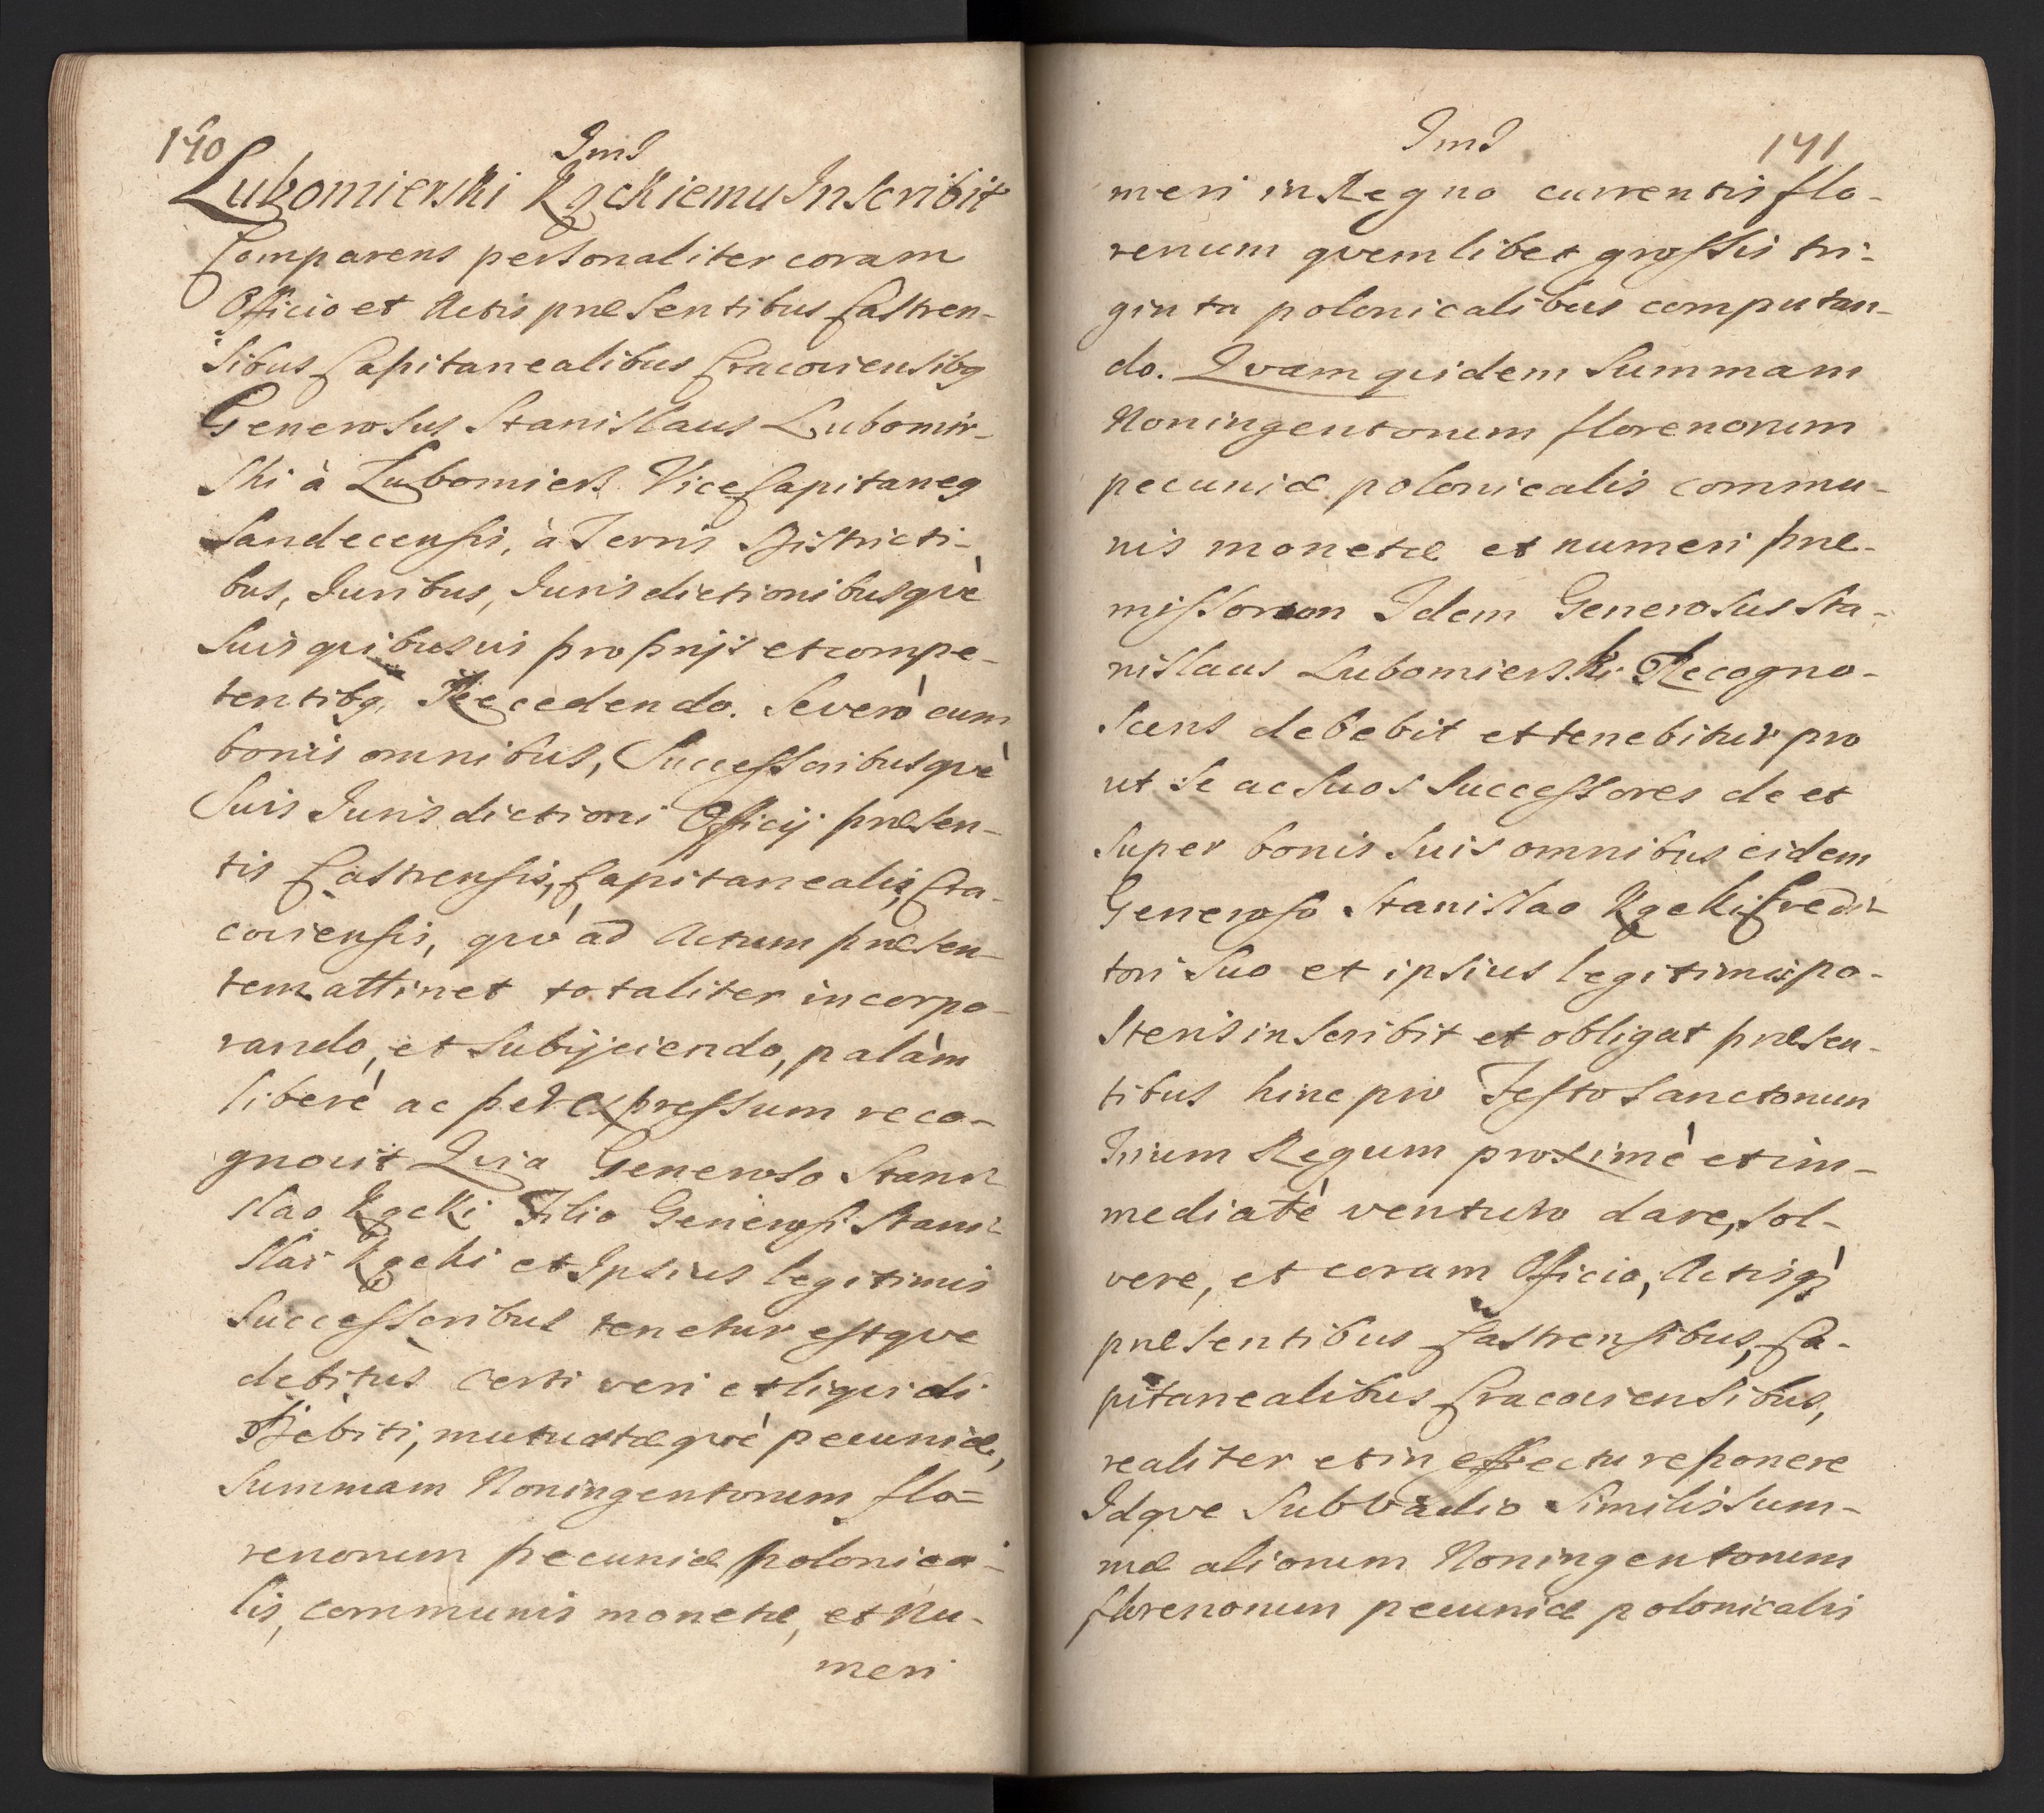 140
Ims
Lubomierski Kąckiemu Inscribit
Comparens personaliter coram
Officio et Actis præsentibus Castren-
sibus Capitanealibus Cracoviensibq
Generosus Stanislaus Lubomir-
ski à Lubomiers ViceCapitaneq
Sandecensis, à Terris Districti-
bus, Juribus, Jurisdictionibusqvè
Suis qvibusvis proprijs et compe-
tentibq, Recedendo. Severò cum
bonis omnibus, Successoribusqvè
Suis Jurisdictioni Officij præsen-
tis Castrensis, Capitanealis, Cra-
coviensis, qvò ad Actum præsen-
tem attinet totaliter incorpo-
rando, et subijciendo, palàm
liberè ac per expressum reco-
gnovit Qvia Generoso Stani-
slao Kącki Filio Generosi Stani-
slai Kącki et Ipsius legitimis
Successoribus tenetur estqve
debitus certi veri et liqvidi
Debiti, mutuatæqvè pecuniæ,
Summam Noningentorum flo=
renorum pecuniæ polonica-
lis, communis monetæ, et Nu-
meri
Ims
141
meri in Regno currentis flo-
renum qvemlibet grossis tri-
ginta polonicalibus computan-
do. Qvam qvidem Summam
Noningentorum florenorum
pecuniæ polonicalis commu-
nis monetæ et numeri præ-
missorum Idem Generosus Sta-
nislaus Lubomierski Recogno-
scens debebit et tenebitur pro
ut se ac suos Successores de et
super bonis suis omnibus eidem
Generoso Stanislao Kącki Credi-
tori Suo et ipsius legitimis po-
steris inscribit et obligat præsen-
tibus hinc pro Festo Sanctorum
Trium Regum proximè et im-
mediatè venturo dare, sol-
vere, et coram Officio, Actisq̀
præsentibus Castrensibus, Ca-
pitanealibus Cracoviensibus,
realiter et in effectu reponere
Idqve Sub vadio Similis Sum-
mæ aliorum Noningentorum
florenorum pecuniæ polonicalis